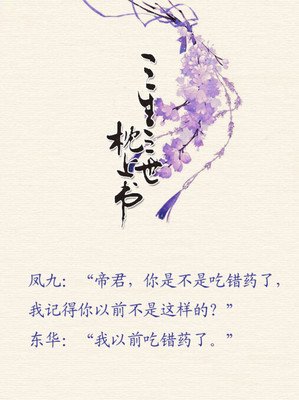 三生三世
枕上书
凤九：“帝君，你是不是吃错药了，
我记得你以前不是这样的？”
东华：“我以前吃错药了。”